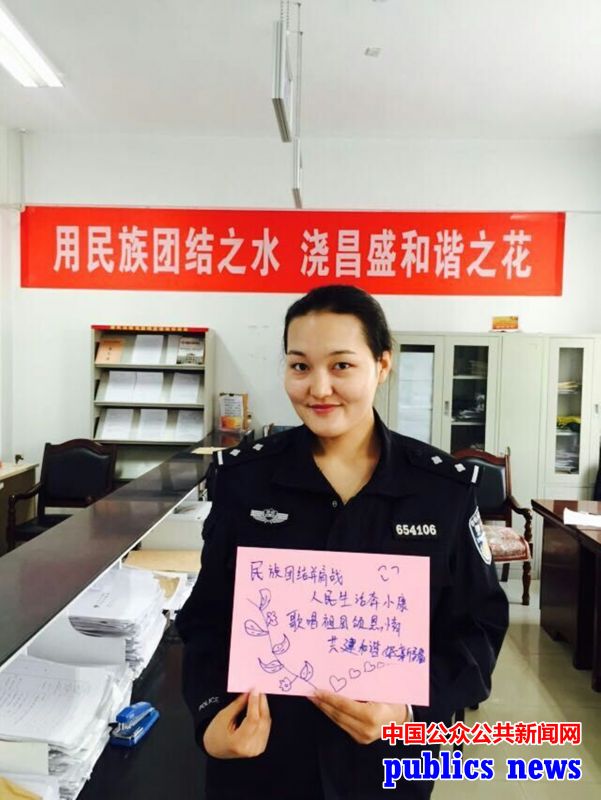 用民族团结之水 浇昌盛和谐之花
654106
民族团结并肩战
人民生活奔小康
歌唱祖国颂恩情
共建和谐 新疆
POLICE
中国公众公共新闻网
publics news